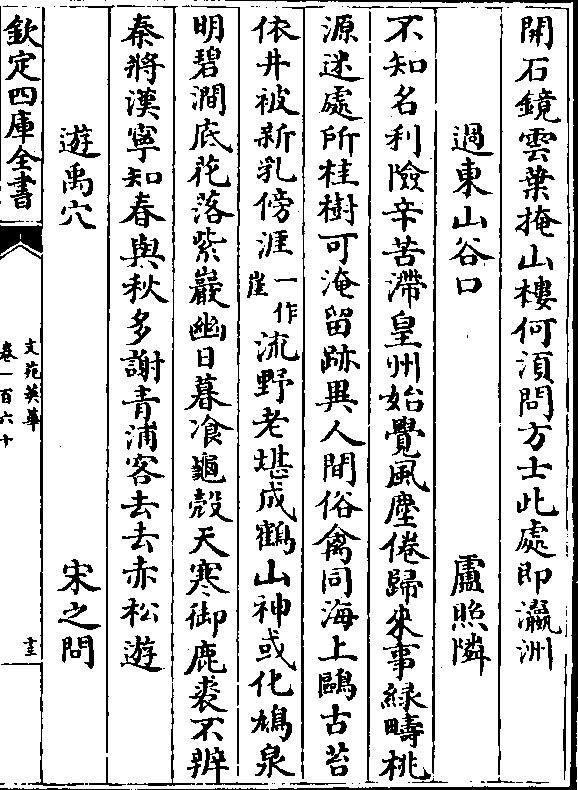 開石鏡雲葉掩山樓何須問方士此處即瀛洲
過東山谷口　盧照隣
不知名利險辛苦滯皇州始覺風塵倦歸來事緑疇桃
源迷處所桂樹可淹留跡異人間俗禽同海上鷗古苔
依井被新乳傍涯一作崖流野老堪成鶴山神或化鳩泉
明碧澗底花落紫巖幽日暮飡龜殻天寒御鹿裘不辨
秦將漢寧知春與秋多謝青浦客去去赤松遊
遊禹穴　宋之問
欽定四庫全書
文苑英華
卷一百六十
十三